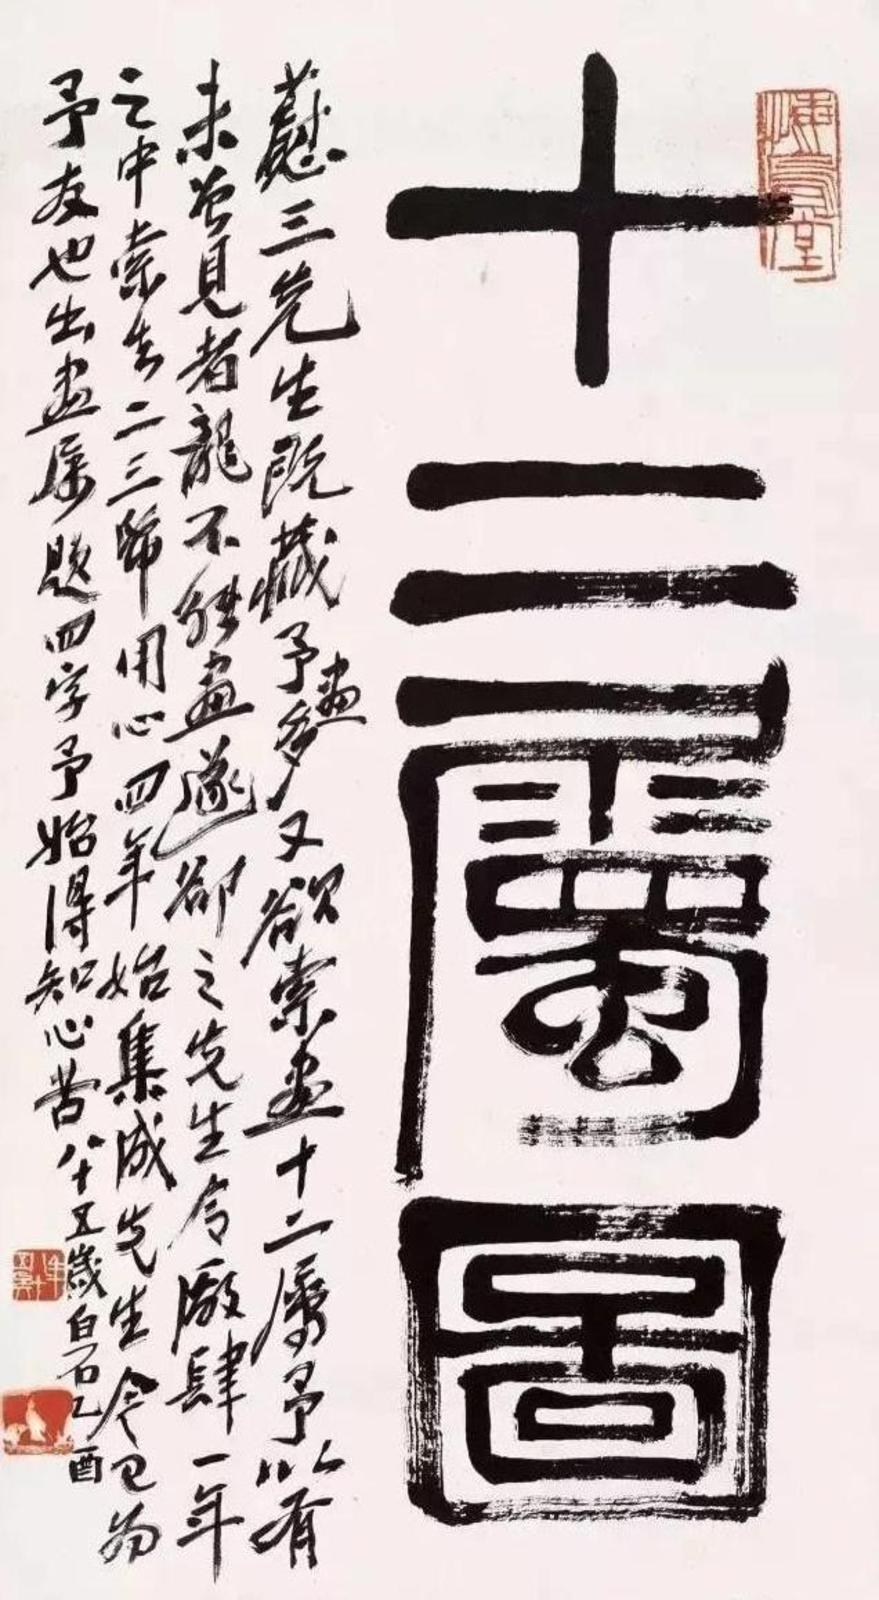 悔烏堂
十二屬圖
三先生既藏予畫多又欲索畫十二屬予以有
未曾見者龍不能畫遂卻之先生令廠肆一年
之中索去二三幅用心四年始集成先生今已為
予友也出畫屬題四字予始得知心苦八十五歲白石乙酉